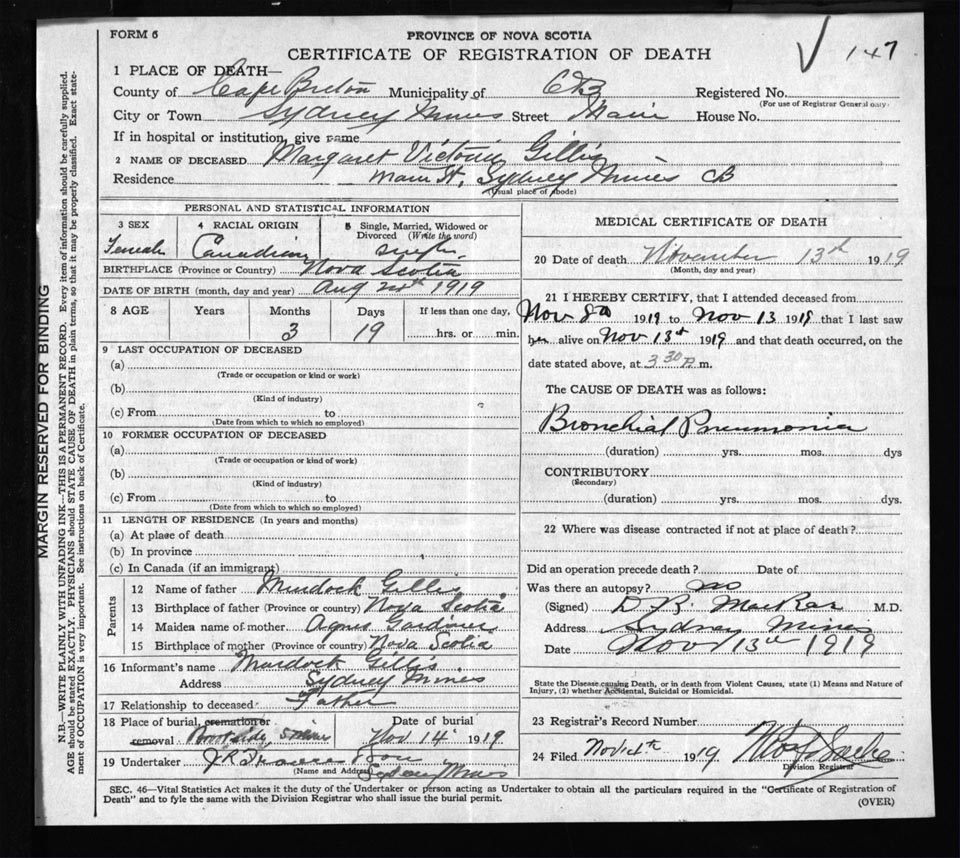 FORM 6
PROVINCE OF NOVA SCOTIA
CERTIFICATE OF REGISTRATION OF DEATH
147
1 PLACE OF DEATH—
County of Cape Breton Municipality of CB Registered No.
(For use of Registrar General only)
City or Town Sydney Mines Street Main House No.
If in hospital or institution, give name
2 NAME OF DECEASED Margaret Victoria Gillis
Residence Main St, Sydney Mines CB
(Usual place of abode)
PERSONAL AND STATISTICAL INFORMATION
3 SEX 4 RACIAL ORIGIN 5 Single, Married, Widowed or Divorced (Write the word)
Female Canadian single
BIRTHPLACE (Province or Country) Nova Scotia
DATE OF BIRTH (month, day and year) Aug 1919
8 AGE Years Months Days If less than one day,
3 19 hrs. or min.
9 LAST OCCUPATION OF DECEASED
(a)
(Trade or occupation or kind or work)
(b)
(Kind of industry)
(c) From to
(Date from which to which so employed)
10 FORMER OCCUPATION OF DECEASED
(a)
(Trade or occupation or kind of work)
(b)
(Kind of industry)
(c) From to
(Date from which to which so employed)
11 LENGTH OF RESIDENCE (In years and months)
(a) At place of death
(b) In province
(c) In Canada (if an immigrant)
Parents
12 Name of father Murdock Gillis
13 Birthplace of father (Province or country) Nova Scotia
14 Maiden name of mother Agnes Gardiner
15 Birthplace of mother (Province or country) Nova Scotia
16 Informant's name Murdock Gillis
Address Sydney Mines
17 Relationship to deceased Father
18 Place of burial, cremation or removal Brookside, S Mines
Date of burial Nov 14 1919
19 Undertaker J R
(Name and Address) Sydney Mines
MEDICAL CERTIFICATE OF DEATH
20 Date of death November 13th 1919
(Month, day and year)
21 I HEREBY CERTIFY, that I attended deceased from
Nov 8 1919 to Nov 13 1919 that I last saw
her alive on Nov 13th 1919 and that death occurred, on the
date stated above, at 3 30 P. m.
The CAUSE OF DEATH was as follows:
Bronchial Pneumonia
(duration) yrs. mos. dys
CONTRIBUTORY
(Secondary)
(duration) yrs. mos. dys.
22 Where was disease contracted if not at place of death?
Did an operation precede death? Date of
Was there an autopsy? no
(Signed) D. R. MacRae M.D.
Address Sydney Mines
Date Nov 13th 1919
State the Disease causing Death, or in death from Violent Causes, state (1) Means and Nature of
Injury, (2) whether Accidental, Suicidal or Homicidal.
23 Registrar's Record Number
24 Filed Nov 14th 1919
Division Registrar
SEC. 46—Vital Statistics Act makes it the duty of the Undertaker or person acting as Undertaker to obtain all the particulars required in the "Certificate of Registration of
Death" and to fyle the same with the Division Registrar who shall issue the burial permit.
(OVER)
MARGIN RESERVED FOR BINDING
N.B.—WRITE PLAINLY WITH UNFADING INK—THIS IS A PERMANENT RECORD. Every item of information should be carefully supplied.
AGE should be stated EXACTLY. PHYSICIANS should STATE CAUSE OF DEATH in plain terms, so that it may be properly classified. Exact statement
of OCCUPATION is very important. See instructions on back of Certificate.